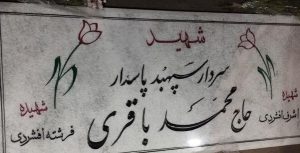 شهید
سردار سپهبد پاسدار
حاج محمد باقری
شهیده
اشرف افشردی
شهیده
فرشته افشردی